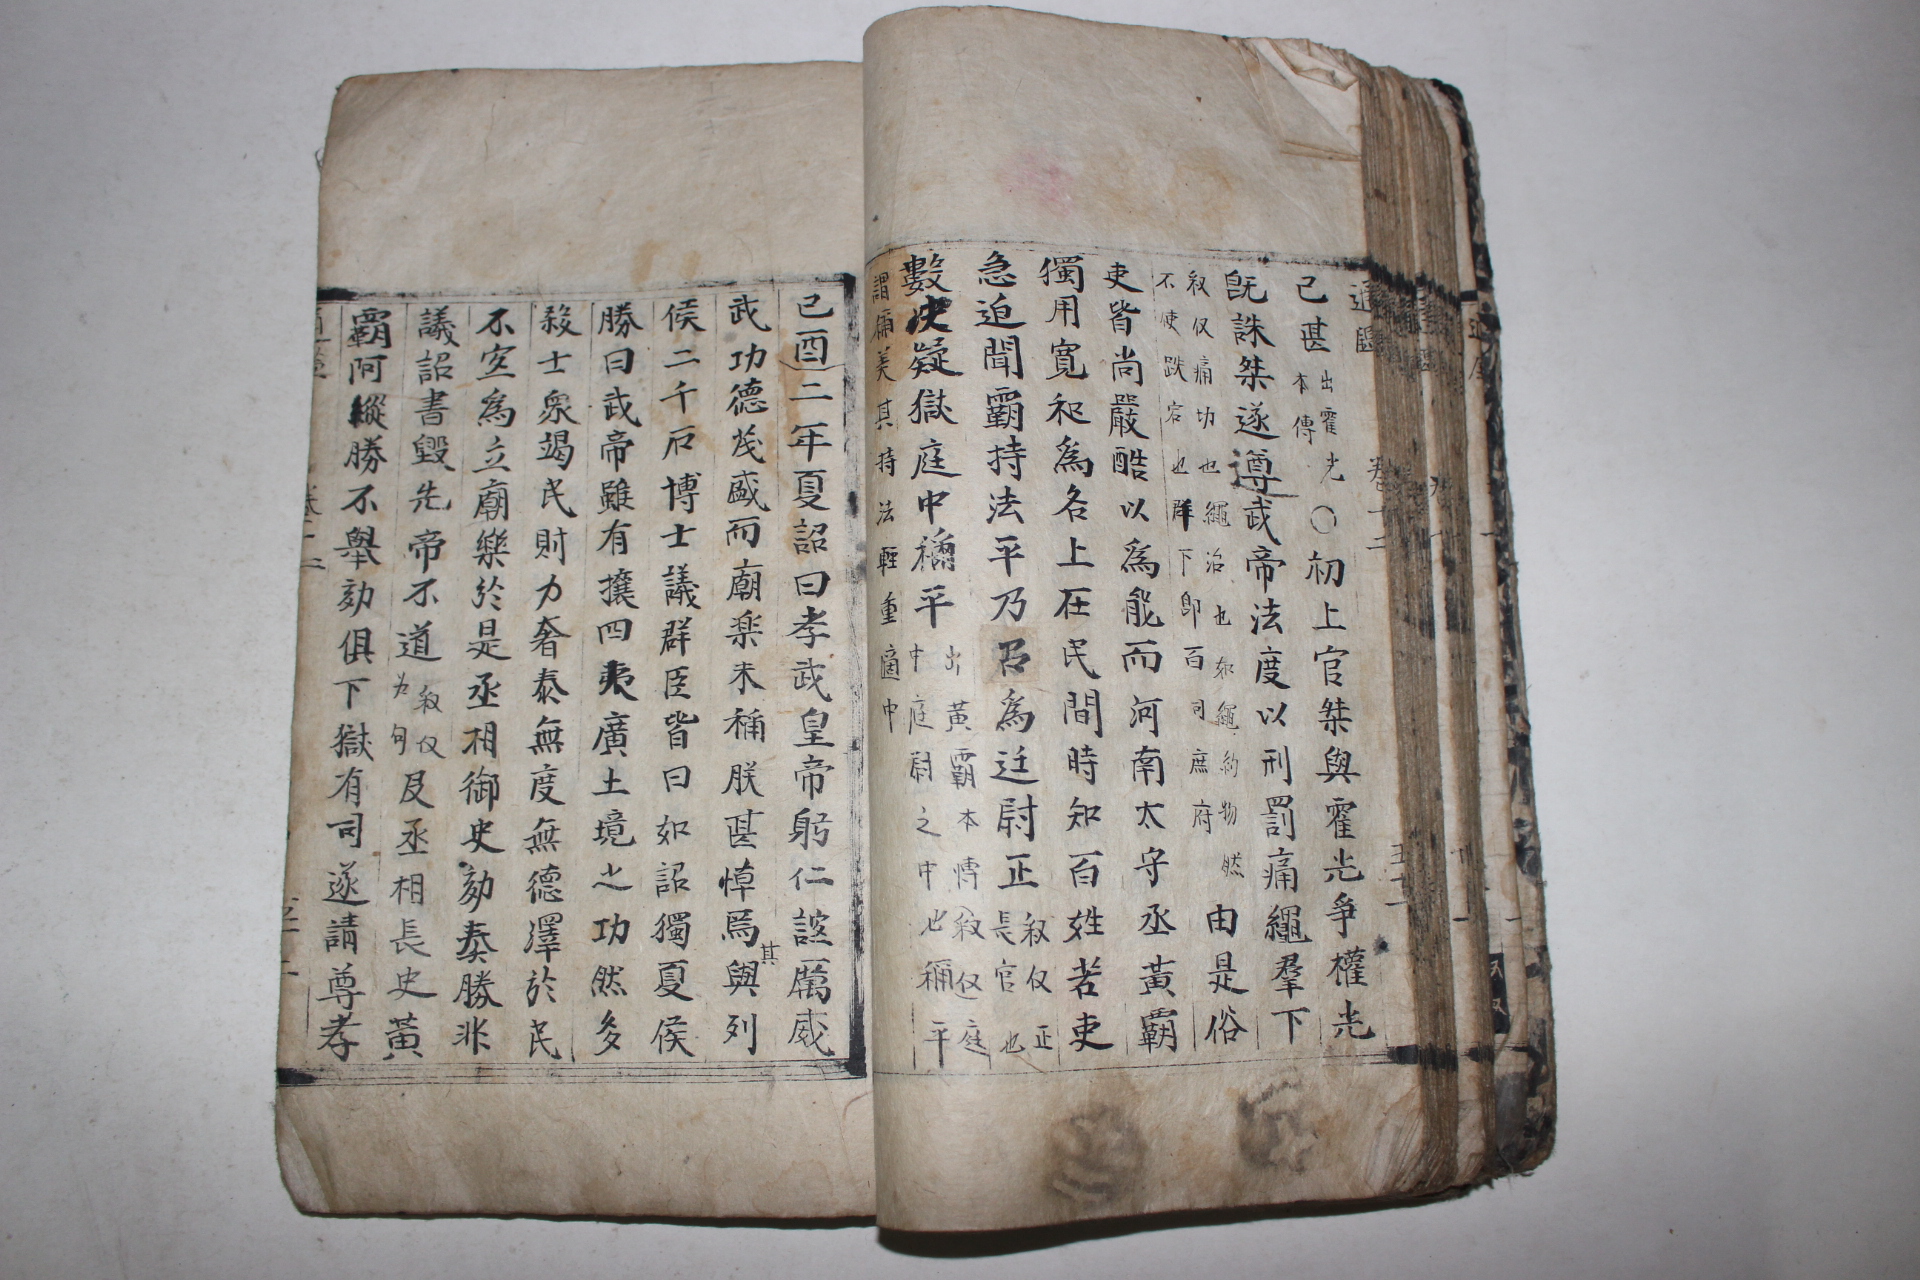 通鑑 卷十二
己甚 出霍光本傳 ○初上官桀與霍光爭權光
旣誅桀遂遵武帝法度以刑罰痛繩羣下
敍仅痛功也繩治也如繩約物然
不使跌宕也群下卽百司庶府
由是俗
吏皆尚嚴酷以爲能而河南太守丞黃霸
獨用寬和爲名上在民間時知百姓若吏
急迫聞霸持法平乃召爲廷尉正 敍仅正長官也
數決疑獄庭中稱平 出黃霸本傳敍仅庭中庭尉之中也稱平
謂稱美其持法輕重適中
己酉二年夏詔曰孝武皇帝躬仁誼厲威
武功德茂盛而廟樂未稱朕甚悼焉其與列
侯二千石博士議群臣皆曰如詔獨夏侯
勝曰武帝雖有攘四夷廣土境之功然多
殺士衆竭民財力奢泰無度無德澤於民
不宜爲立廟樂於是丞相御史劾奏勝非
議詔書毀先帝不道 敍仅为句 及丞相長史黃
霸阿縱勝不舉劾俱下獄有司遂請尊孝